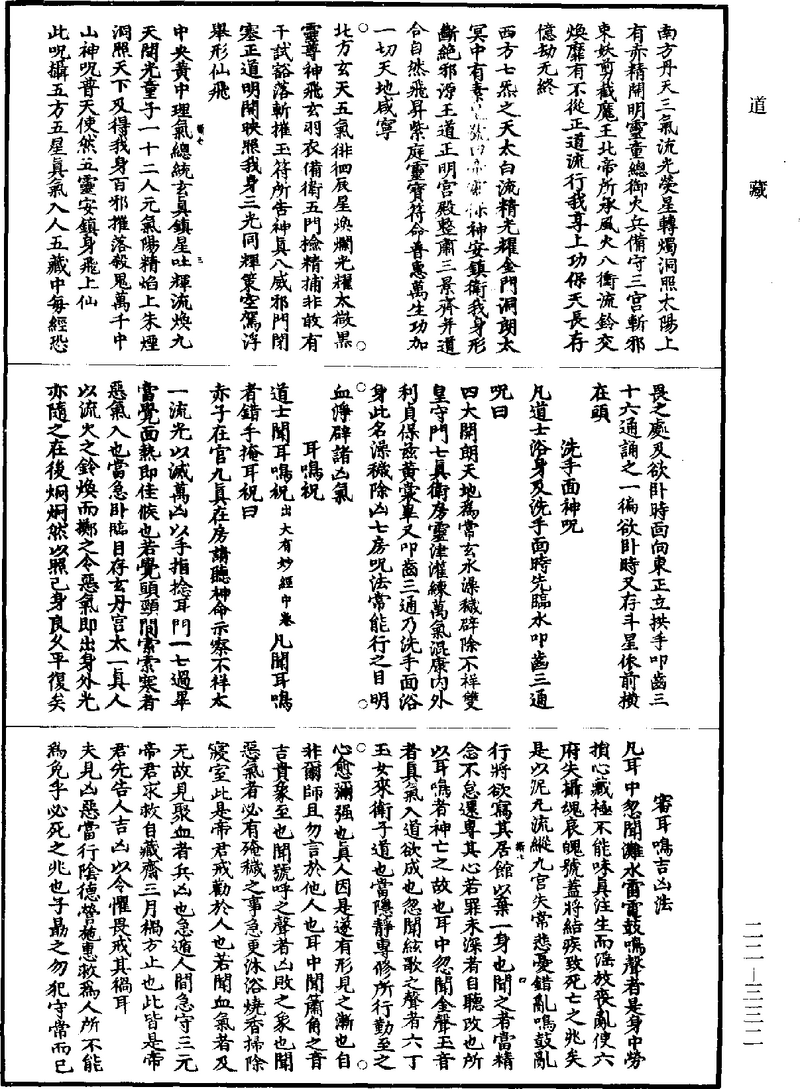 道藏
南方丹天三氣流光熒星轉燭洞照太陽上
有赤精開明靈童總御火兵備守三宮斬邪
束妖剪截魔王北帝所承風火八衝流鈴交
煥靡有不從正道流行我享上功保天長存
億劫无終
西方七炁之天太白流精光耀金門洞朗太
冥中有素
神安鎮衛我身形
斷絕邪源王道正明宮殿整肅三景齊并道
合自然飛昇紫庭靈寶符命普惠萬生功加
一切天地咸寧
北方玄天五氣徘徊辰星煥爛光耀太微黑
靈尊神飛玄羽衣備衛五門檢精捕非敢有
干試豁落斬摧玉符所告神真八威邪門閉
塞正道明開映照我身三光同輝策空駕浮
舉形仙飛
中央黃中理氣總統玄真鎮星吐輝流煥九
天開光童子一十二人元氣陽精焰上朱煙
洞照天下及得我身百邪摧落殺鬼萬千中
山神呪普天使然五靈安鎮身飛上仙
此呪攝五方五星真氣入人五藏中每經恐
畏之處及欲卧時面向東正立拱手叩齒三
十六通誦之一徧欲卧時又存斗星俠前橫
在頭
洗手面神呪
凡道士浴身及洗手面時先臨水叩齒三通
呪曰
四大開朗天地為常玄水澡穢辟除不祥雙
皇守門七真衛房靈津灌練萬氣混康内外
利貞保兹黃裳畢又叩齒三通乃洗手面浴
身此名澡穢除凶七房呪法常能行之目明
血淨辟諸凶氣
耳鳴祝
道士聞耳鳴祝出大有妙經中卷凡聞耳鳴
者錯手掩耳祝曰
赤子在宮九真在房請聽神命示察不祥太
一流光以滅萬凶以手指捻耳門一七過畢
當覺面熱即佳候也若覺頭頸間索索寒者
惡氣入也當急卧臨目存玄丹宮太一真人
以流火之鈴煥而擲之令惡氣即出身外光
亦隨之在後炯炯然以照己身良久平復矣
審耳鳴吉凶法
凡耳中忽聞灘水雷電鼓鳴聲者是身中勞
損心藏極不能味真注生而滛放喪亂使六
府失攝魂哀魄號蓋將結疾致死亡之兆矣
是以泥九流縱九宮失常悲憂錯亂鳴鼓亂
行將欲寫其居館以棄一身也聞之者當精
念不怠還專其心若罪未深者自聽改也所
以耳鳴者神亡之故也耳中忽聞金聲玉音
者真氣入道欲成也忽聞絃歌之聲者六丁
玉女來衛子道也當隱靜專修所行勤至之
心愈彌强也真人因是遂有形見之漸也自
非爾師且勿言於他人也耳中聞簫角之音
吉貴象至也聞號呼之聲者凶敗之象也聞
惡氣者必有淹穢之事急更沐浴燒香掃除
寢室此是帝君戒勸於人也若聞血氣者及
无故見聚血者兵凶也急遁人間急守三元
帝君求救自藏齋三月禍方止也此皆是帝
君先告人吉凶以令懼畏戒其禍耳
夫見凶惡當行陰德營施惠救爲人所不能
為免乎必死之兆也子勗之勿犯守常而已
二二—三三二